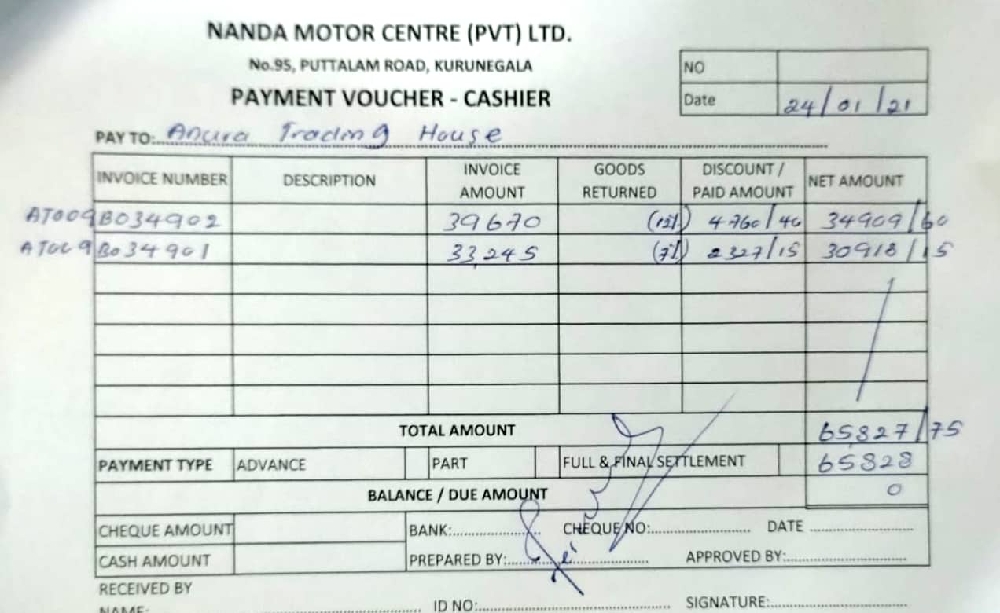 NANDA MOTOR CENTRE (PVT) LTD.
No.95, PUTTALAM ROAD, KURUNEGALA
PAYMENT VOUCHER - CASHIER
NO
Date 24/01/21
PAY TO: Anura Trading House
INVOICE NUMBER DESCRIPTION INVOICE AMOUNT GOODS RETURNED DISCOUNT / PAID AMOUNT NET AMOUNT
AT009B034902 39670 (12%) 4760/40 34909/60
AT009B034901 33,245 (7%) 2327/15 30918/15
TOTAL AMOUNT 65827/75
PAYMENT TYPE ADVANCE PART FULL & FINAL SETTLEMENT 65828
BALANCE / DUE AMOUNT 0
CHEQUE AMOUNT BANK: CHEQUE NO: DATE
CASH AMOUNT PREPARED BY: APPROVED BY:
RECEIVED BY
NAME: ID NO: SIGNATURE: